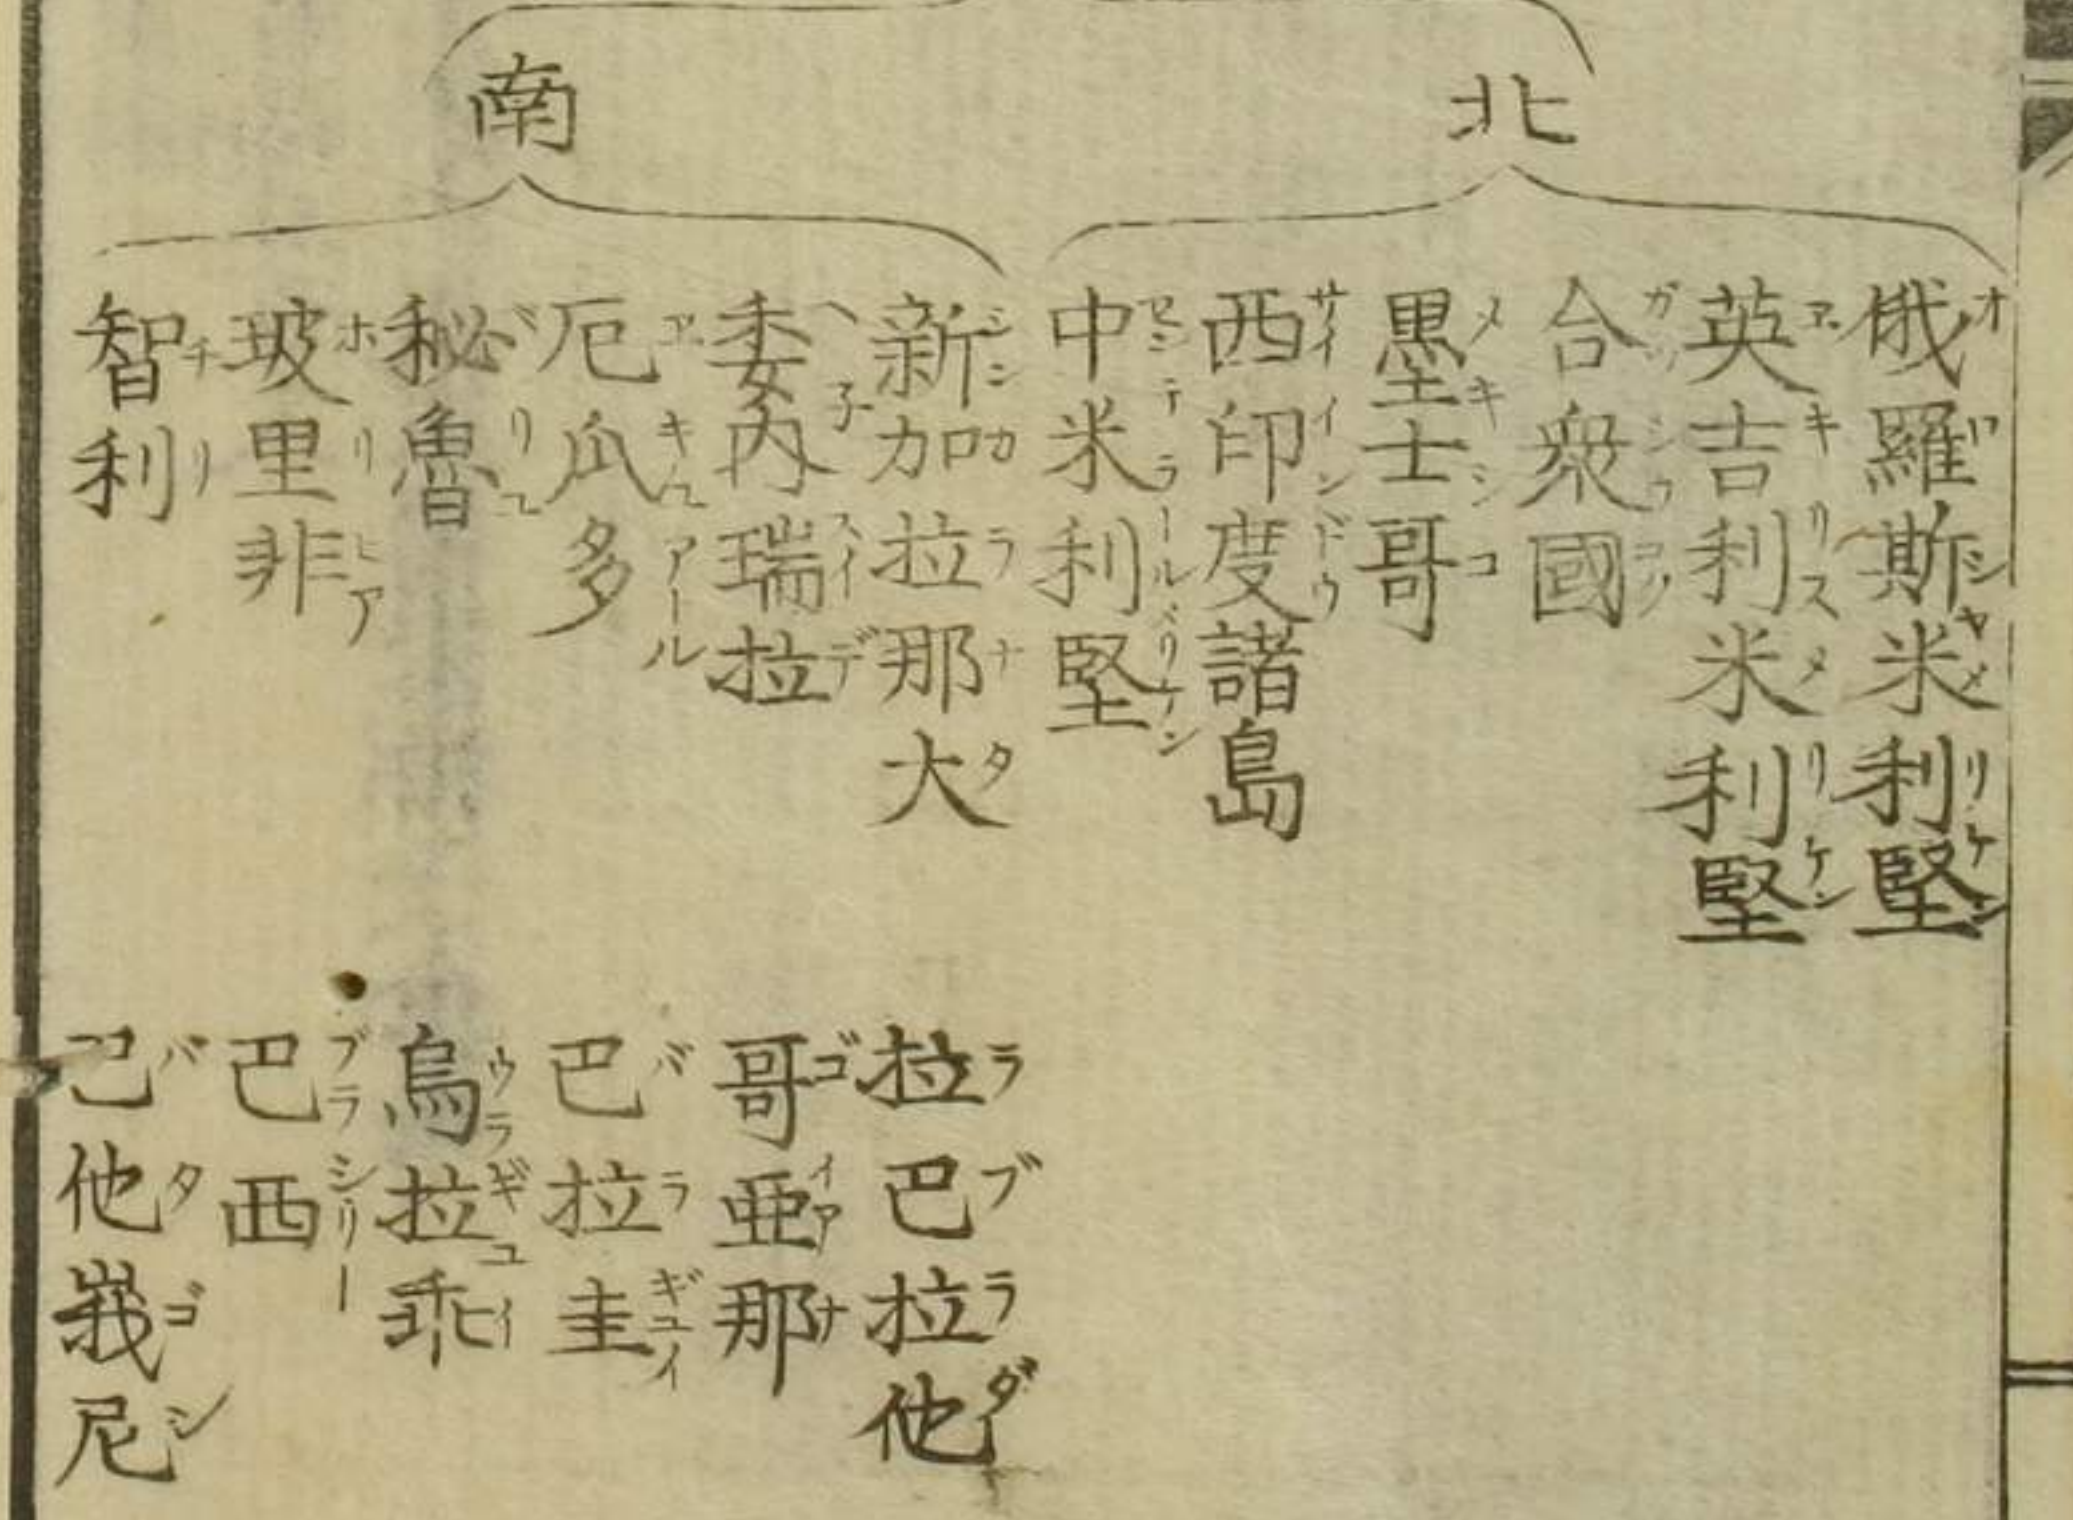 北
俄羅斯米利堅
オロシヤメリケン
英吉利米利堅
エキリスメリケン
合衆國
ガツシウコク
墨士哥
メキシコ
西印度諸島
サイインドウ
中米利堅
センテラールメリケン
南
新加拉那大
シンカラナタ
委内瑞拉
ヘ子スイデ
厄瓜多
エキユアール
秘魯
ベリユ
玻里非
ホリヒア
智利
チリ
拉巴拉他
ラブラダ
哥亜那
ゴイアナ
巴拉圭
バラギユイ
烏拉乖
ウラギユイ
巴西
ブラシリー
巴他峩尼
バタゴシ